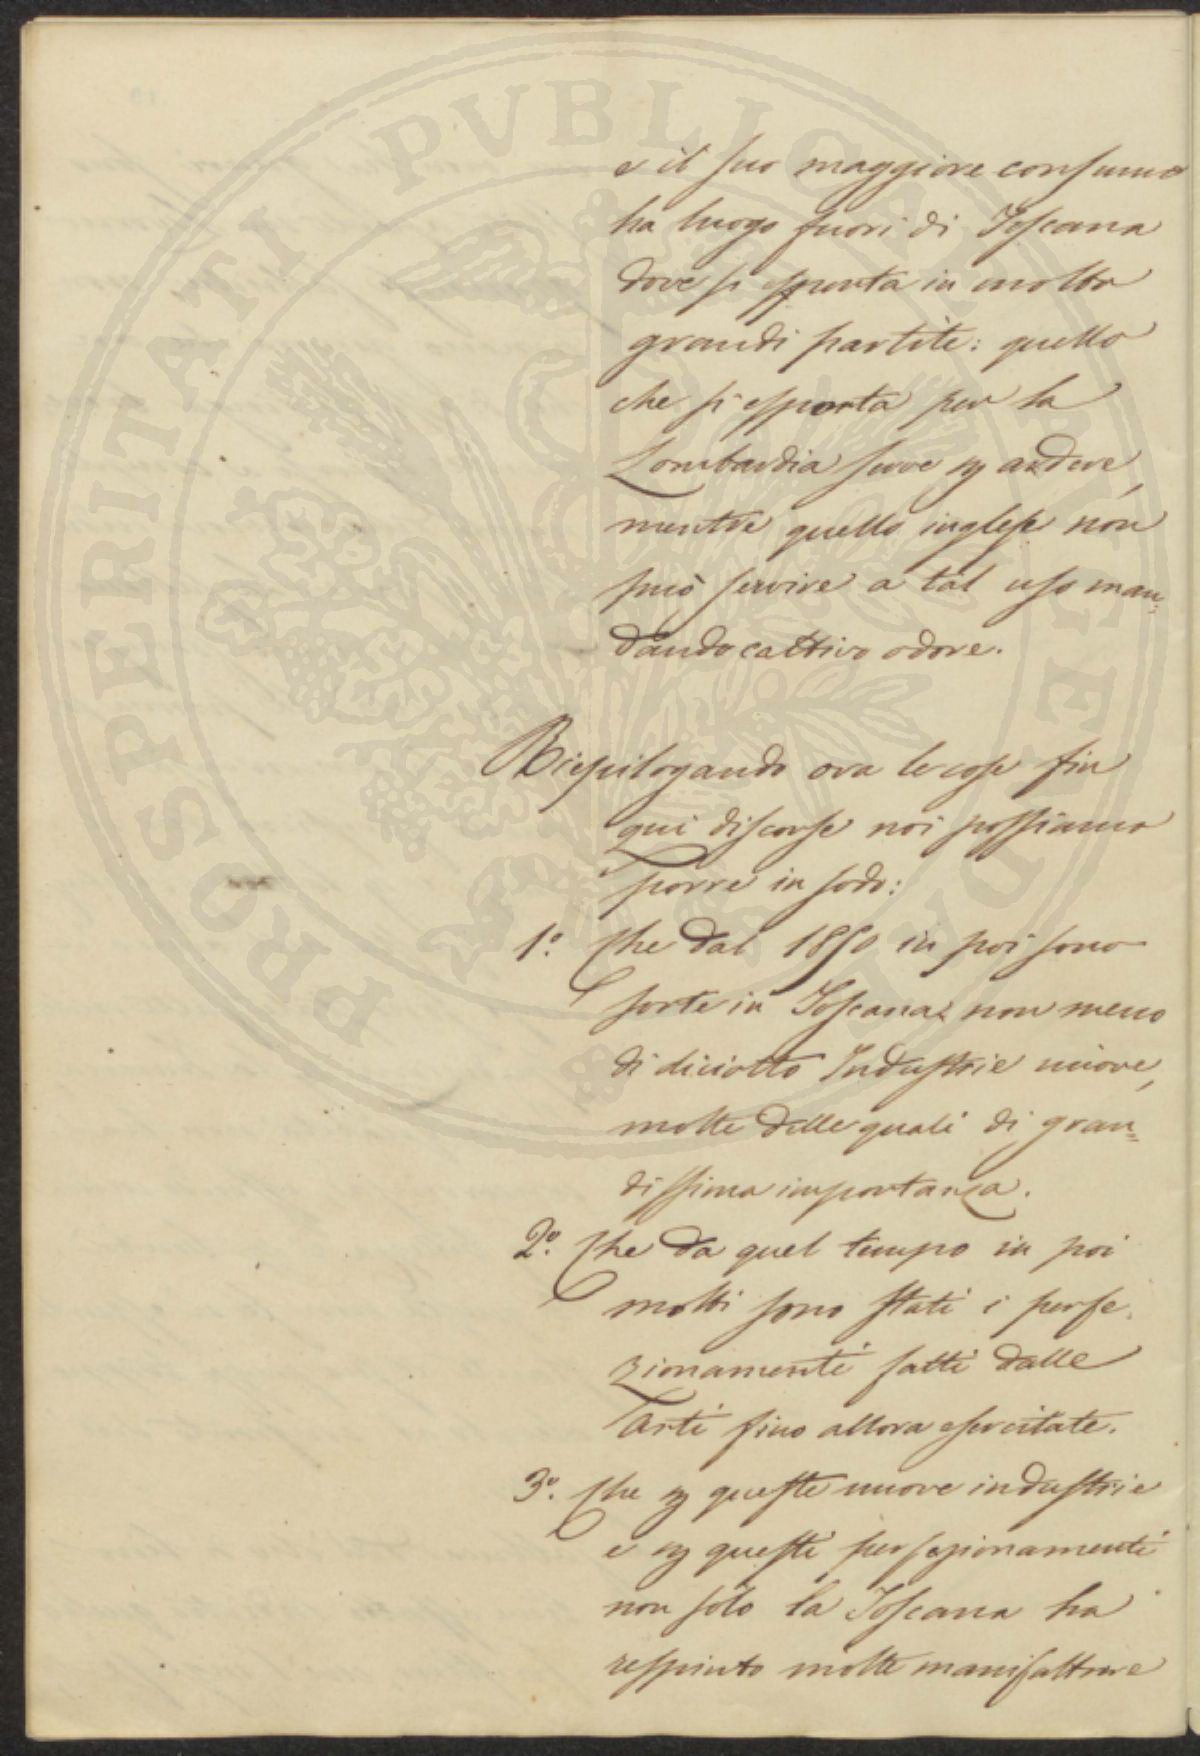 e il suo maggiore consumo
ha luogo fuori di Toscana
dove si esporta in molto
grandi partite: quello
che si esporta per la
Lombardia serve p ardere,
mentre quello inglese non
può servire a tal uso man=
dando cattivo odore.
Riepilogando ora le cose fin
qui discorse noi possiamo
porre in sodo:
1.° Che dal 1850 in poi sono
sorte in Toscana non meno
di diciotto Industrie nuove,
molte delle quali di gran=
dissima importanza.
2.° Che da quel tempo in poi
molti sono stati i perfe.
zionamenti fatti dalle
Arti fino allora esercitate.
3.° Che p queste nuove industrie
e p questi perfezionamenti
non solo la Toscana ha
respinto molte manifatture
PROSPERITATI PVBLICAE AVGENDAE